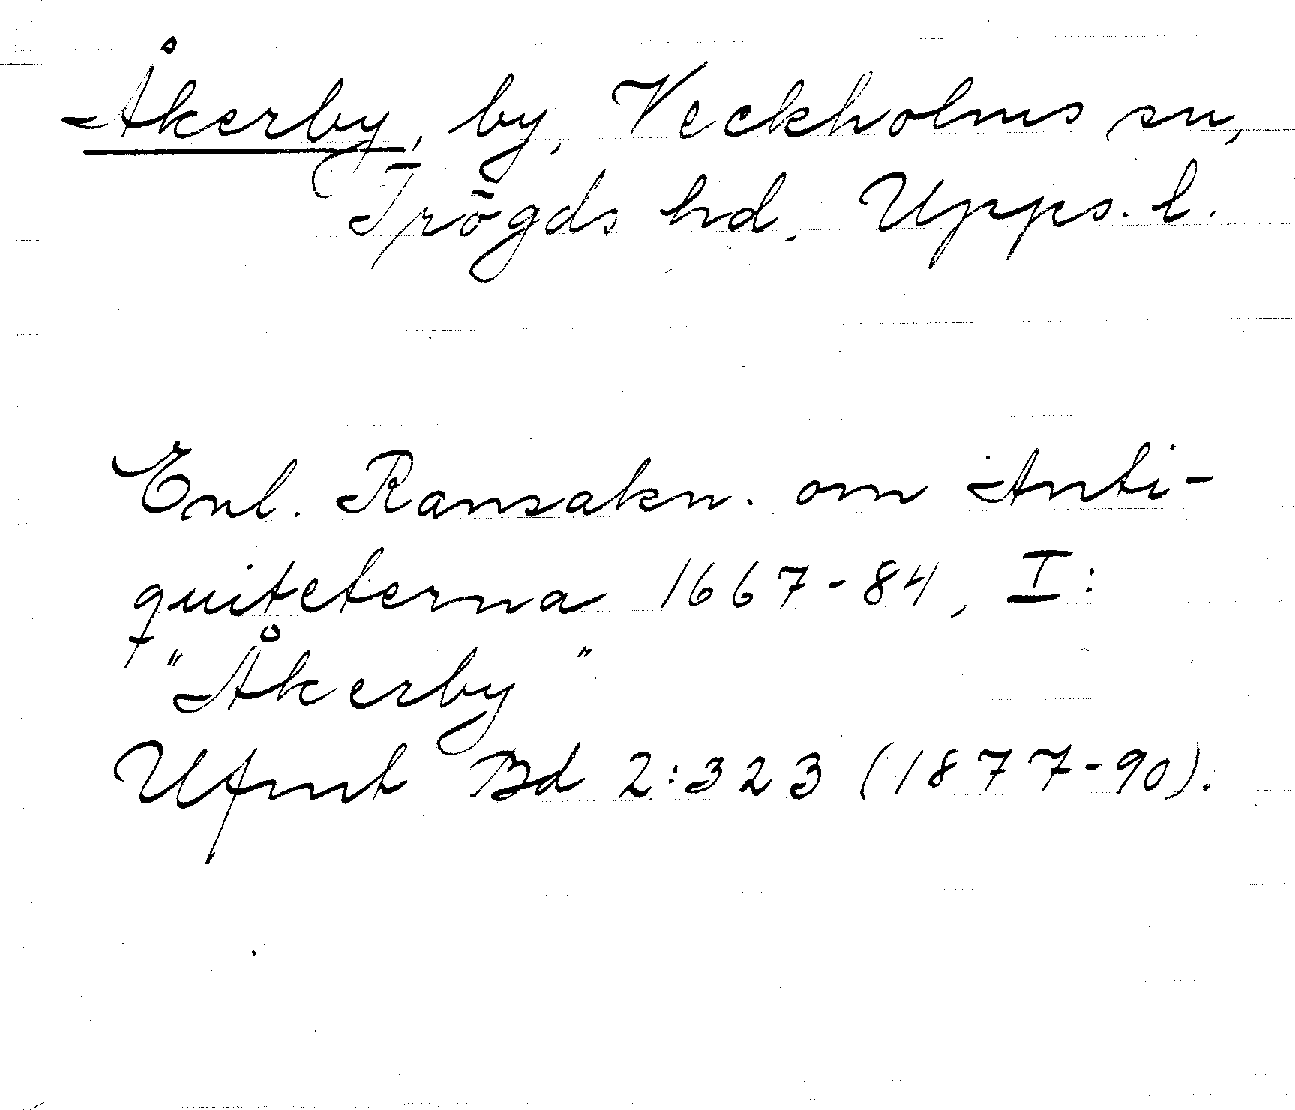 Åkerby, by, Veckholms sn,
Trögds hd. Upps. l.
Enl. Ransakn. om Anti-
quiteterna 1667-84, I:
"Åkerby"
Ufmt Bd 2:323 (1877-90).